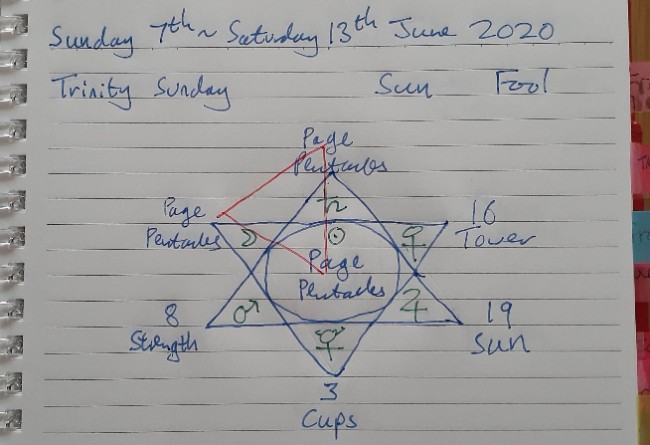 Sunday 7th ~ Saturday 13th June 2020
Trinity Sunday Sun Fool
Page
Pentacles
♄
Page
Pentacles
☽
☉
♀
16
Tower
Page
Pentacles
8
Strength
♂
☿
♃
19
Sun
3
Cups